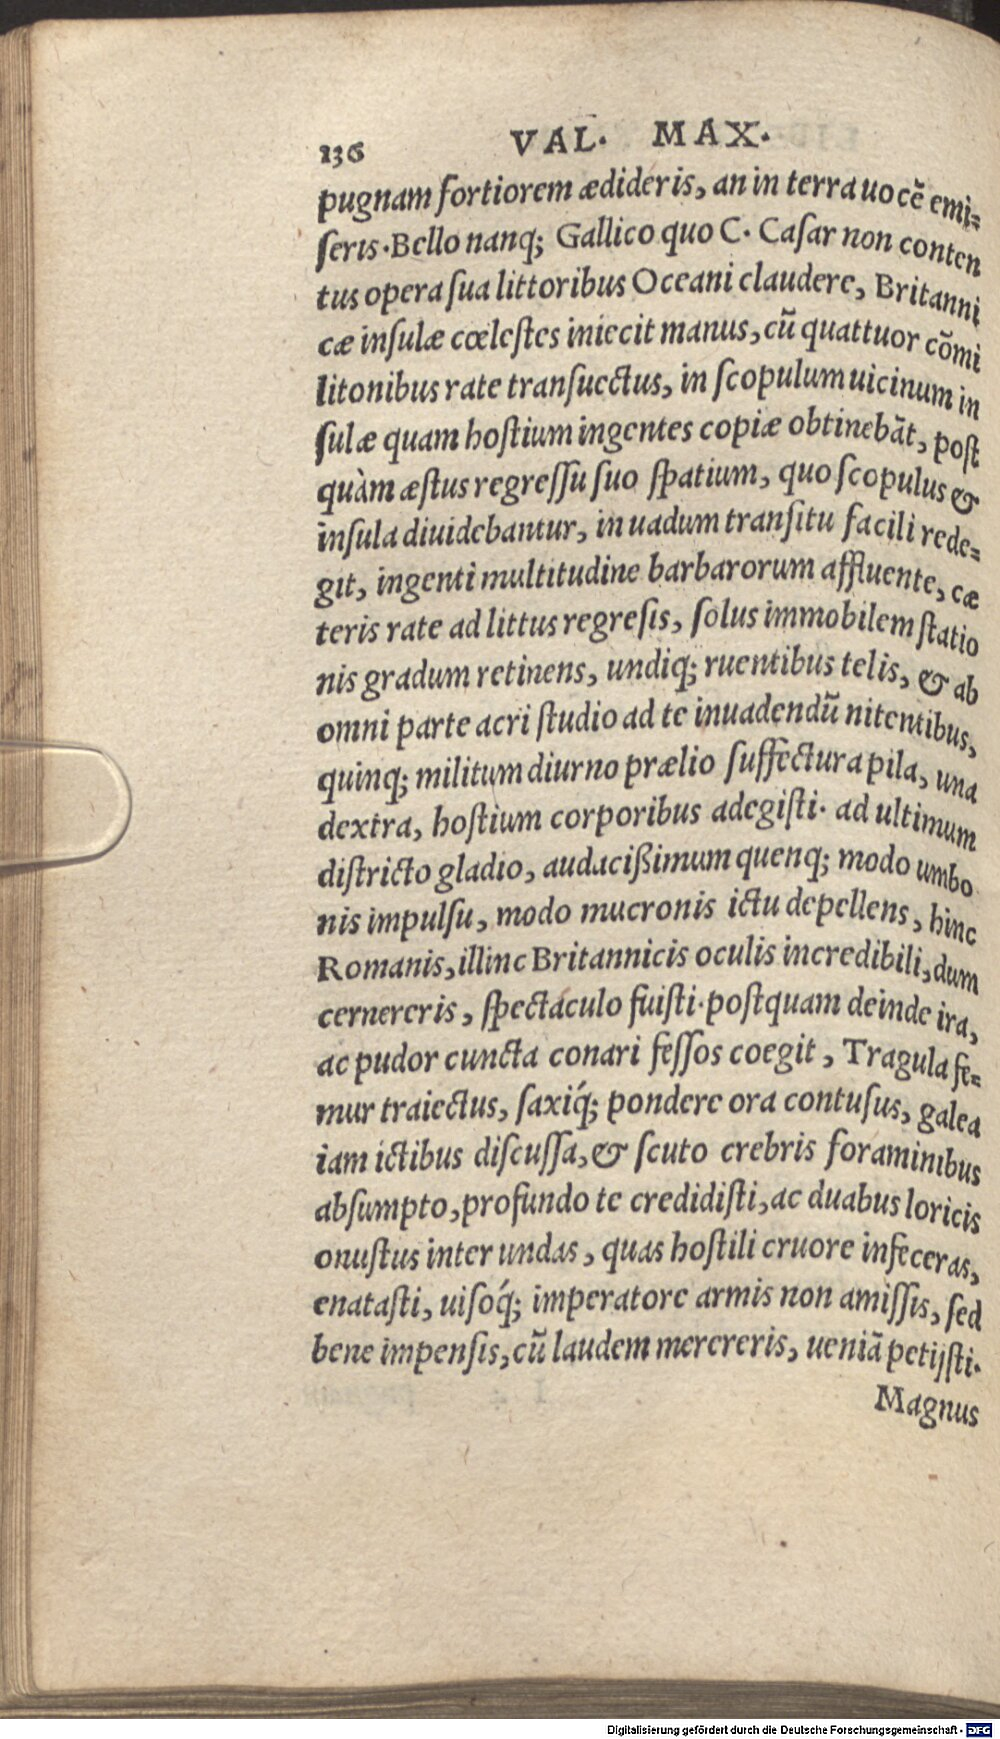 136 VAL. MAX.
pugnam fortiorem ædideris, an in terra uocē emi=
ſeris. Bello nanq; Gallico quo C. Cæſar non conten
tus opera ſua littoribus Oceani claudere, Britanni
cæ inſulæ cœleſtes iniecit manus, cū quattuor cōmi
litonibus rate tranſuectus, in ſcopulum uicinum in
ſulæ quam hoſtium ingentes copiæ obtinebāt, poſt
quàm æſtus regreſſu ſuo ſpatium, quo ſcopulus &
inſula diuidebantur, in uadum tranſitu facili rede=
git, ingenti multitudine barbarorum affluente, cæ
teris rate ad littus regreſis, ſolus immobilem ſtatio
nis gradum retinens, undiq; ruentibus telis, & ab
omni parte acri ſtudio ad te inuadendū nitentibus,
quinq; militum diurno prælio ſuffectura pila, una
dextra, hoſtium corporibus adegiſti. ad ultimum
diſtricto gladio, audacißimum quenq; modo umbo
nis impulſu, modo mucronis ictu depellens, hinc
Romanis, illinc Britannicis oculis incredibili, dum
cernereris, ſpectaculo fuiſti. poſtquam deinde ira,
ac pudor cuncta conari feſſos coegit, Tragula fe=
mur traiectus, ſaxiq́; pondere ora contuſus, galea
iam ictibus diſcuſſa, & ſcuto crebris foraminibus
abſumpto, profundo te credidiſti, ac duabus loricis
onuſtus inter undas, quas hoſtili cruore infeceras,
enataſti, uiſoq́; imperatore armis non amiſſis, ſed
bene impenſis, cū laudem merereris, ueniā petijſti.
Magnus
Digitalisierung gefördert durch die Deutsche Forschungsgemeinschaft - DFG